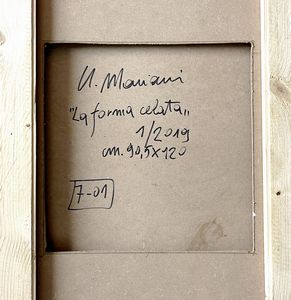 U. Mariani
"La forma celata„
1/2019
cm. 90,5x120
7-01